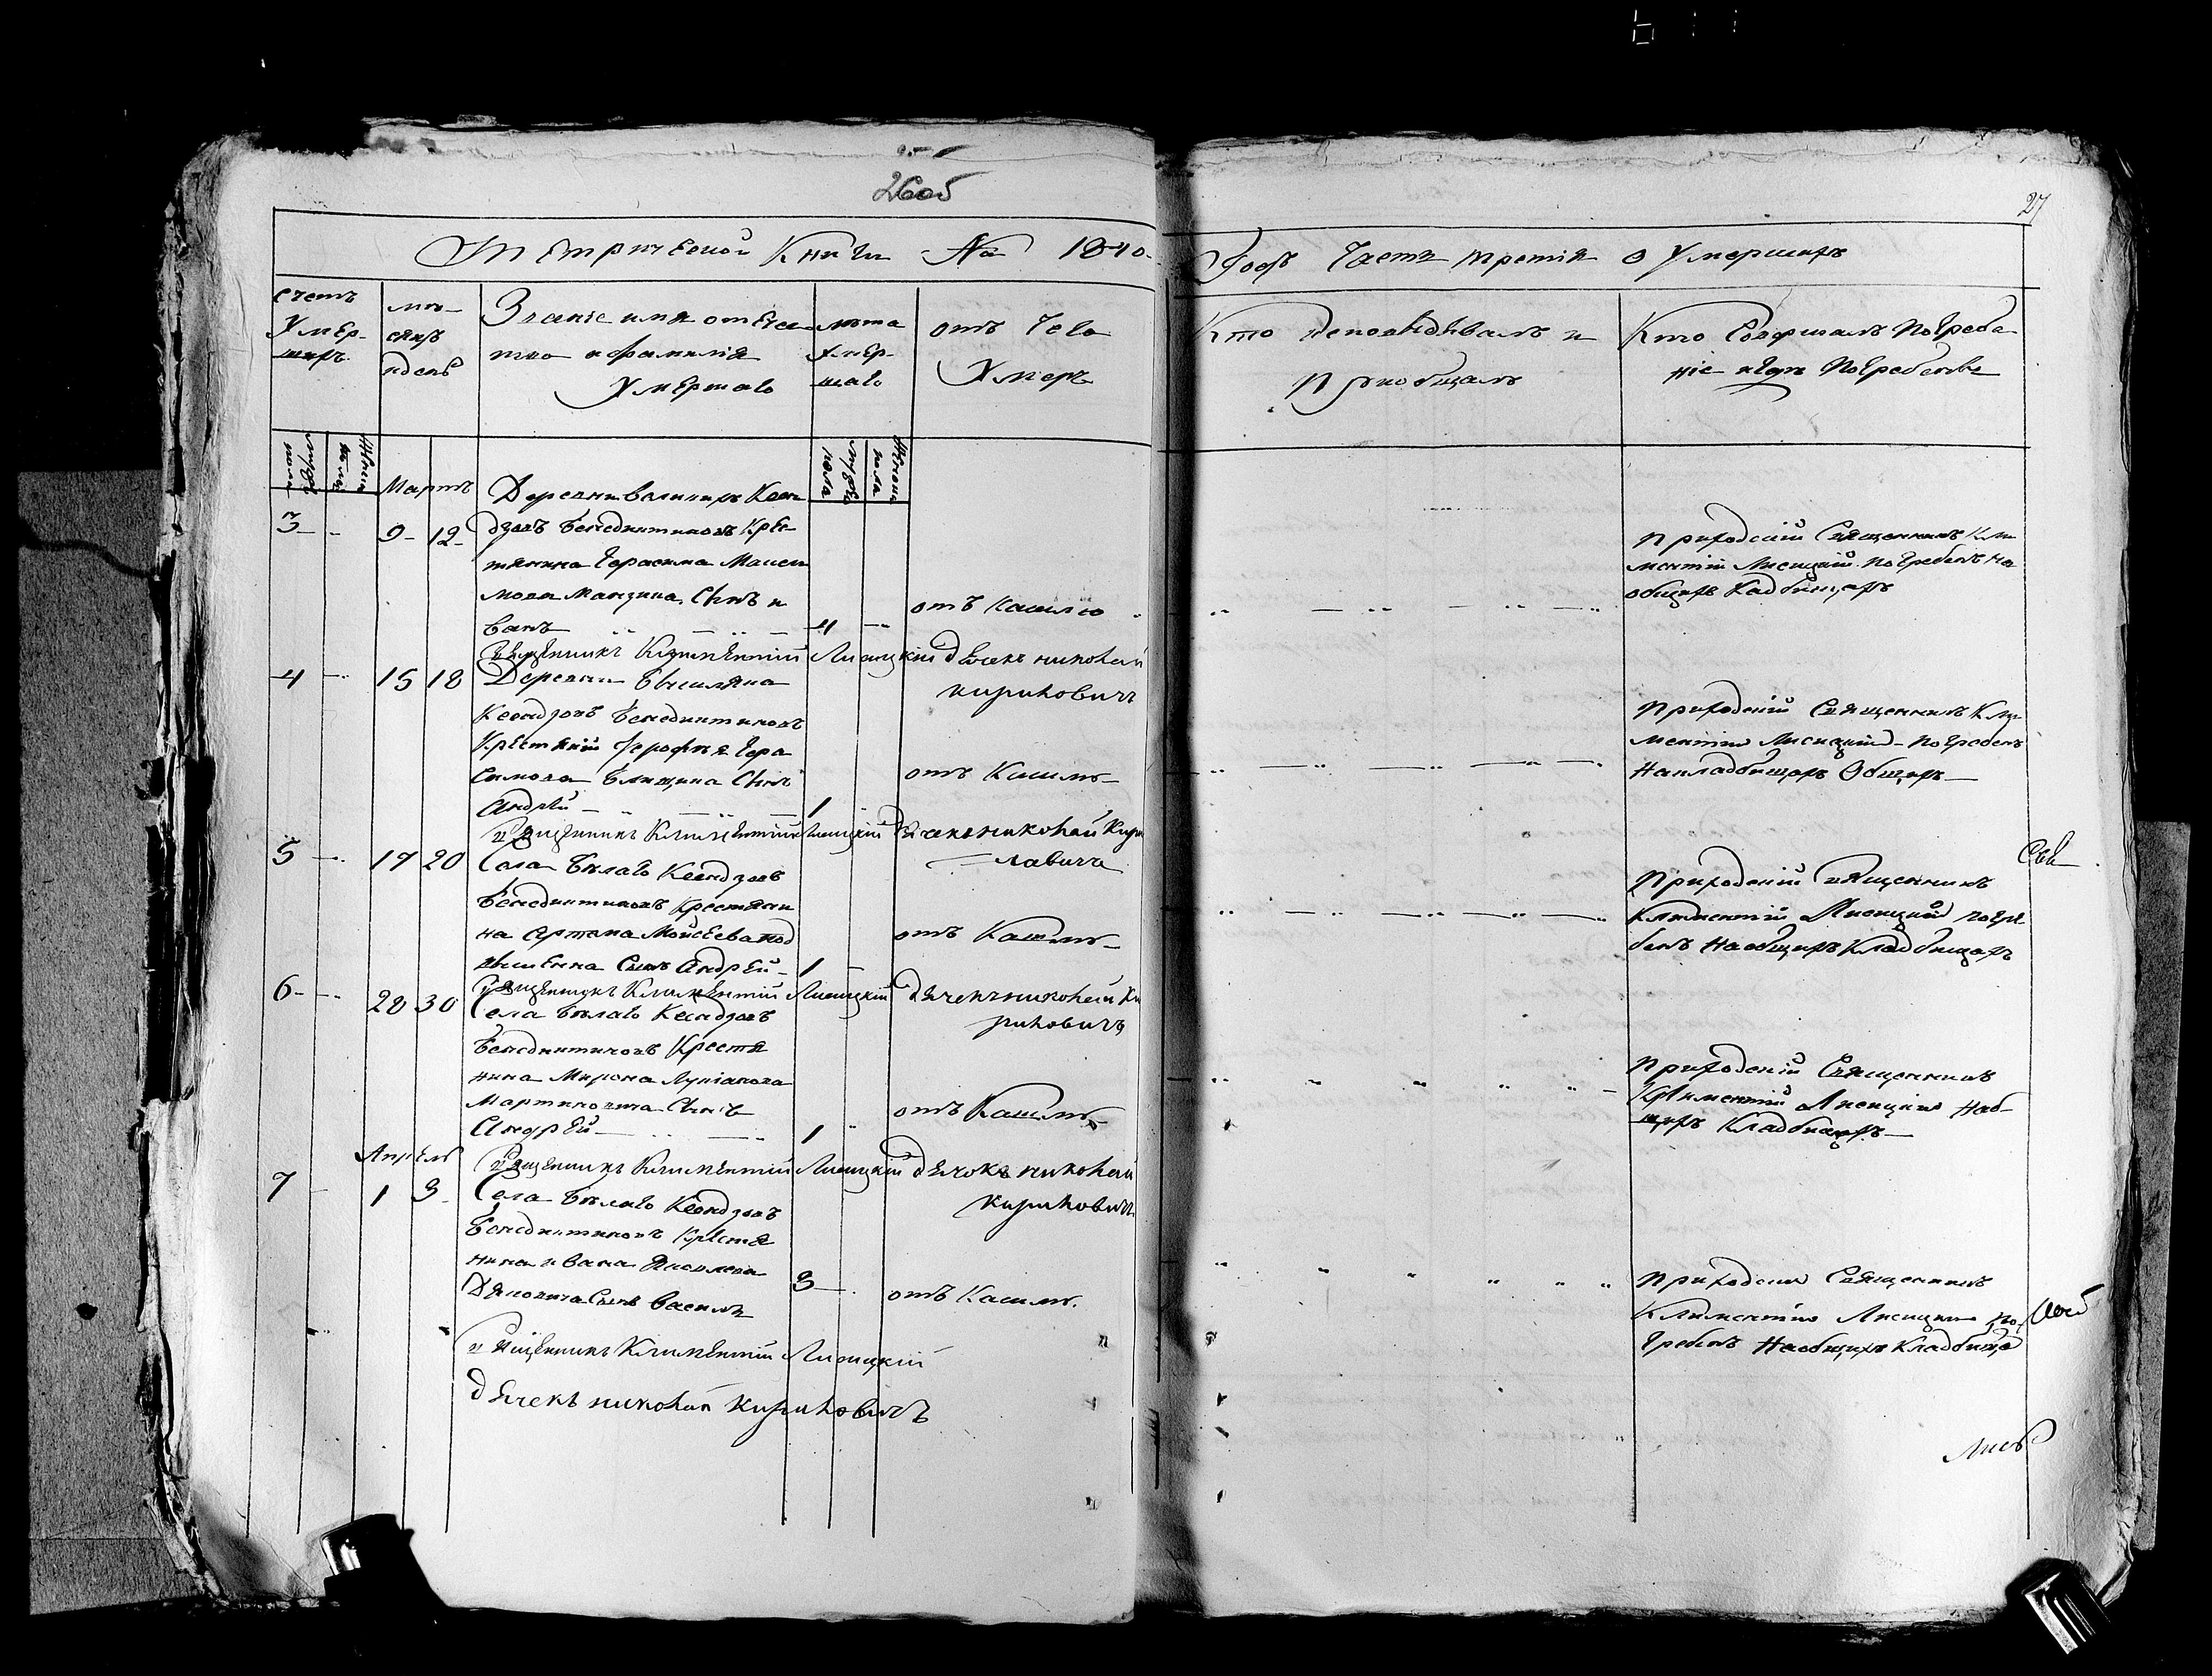 26об
27
Метрической Книги На 1840
Годъ Часть третія о Умершихъ
Счетъ
Умер-
шихъ
мѣ-
сяцъ
и день
Званіе имя отчес
тво и фамилія
Умершаго
лѣта
Умер-
шаго
отъ чего
Умеръ
Кто исповѣдывалъ и
Пріобщалъ
Кто Совершалъ Погребе
ніе и гдѣ Погребены
мужеска
пола
Женска
пола
мужеска
пола
Женска
пола
Мартъ
3 - - 9 - 12 -
Деревни Великихъ Ксен
дзовъ Бенедиктиновъ Крес-
тянина Герасима
Сынъ и
ванъ 4 -
отъ Кашлю
Приходскій Священникъ Кли
ментій Лисицкій погребенъ на
общихъ Кладбищахъ
Священникъ Климентій Лисицкій дьчекъ николай
кириловичъ
4 - 15 18
Деревни
Ксендзовъ Бенедиктиновъ
Гера
симова Сынъ
Андрей 1
отъ Кашлю
Приходскій Священникъ Кли
ментій Лисицкій погребенъ
На кладбищахъ Общихъ
Священникъ Климентій Лисицкій дьчекъ николай Кири
ловичъ
5 - 17 20
Села Бѣлаго Ксендзовъ
Бенедиктиновъ Крестяни
на Артема Мойсеева
Сынъ Андрей - 1 -
отъ Кашлю
Приходскій Священникъ
Климентій Лисицкій погре
бенъ На общихъ Кладбищахъ
Священникъ Климентій Лисицкій дьчекъ николай Ки
риловичъ
6 - 28 30
Села Бѣлаго Ксендзовъ
Бенедиктиновъ Кресття
нина Мирона
Мартиновича Сынъ
Андрей 1
отъ Кашлю
Приходскій Священникъ
Климентій Лисицкій Наоб-
щихъ Кладбищахъ
Апрель
Священникъ Климентій Лисицкій дьчокъ николай
кириловичъ
7 - 1 3 -
Села Бѣлаго Ксендзовъ
Бенедиктиновъ Крестя
нина ивана
Сынъ Василь 3 -
отъ Кашлю.
Приходскій Священникъ
Климентій Лисицкій по
гребенъ На общихъ Кладбище
Священникъ Климентій Лисицкій
дьчекъ николай кириловичъ